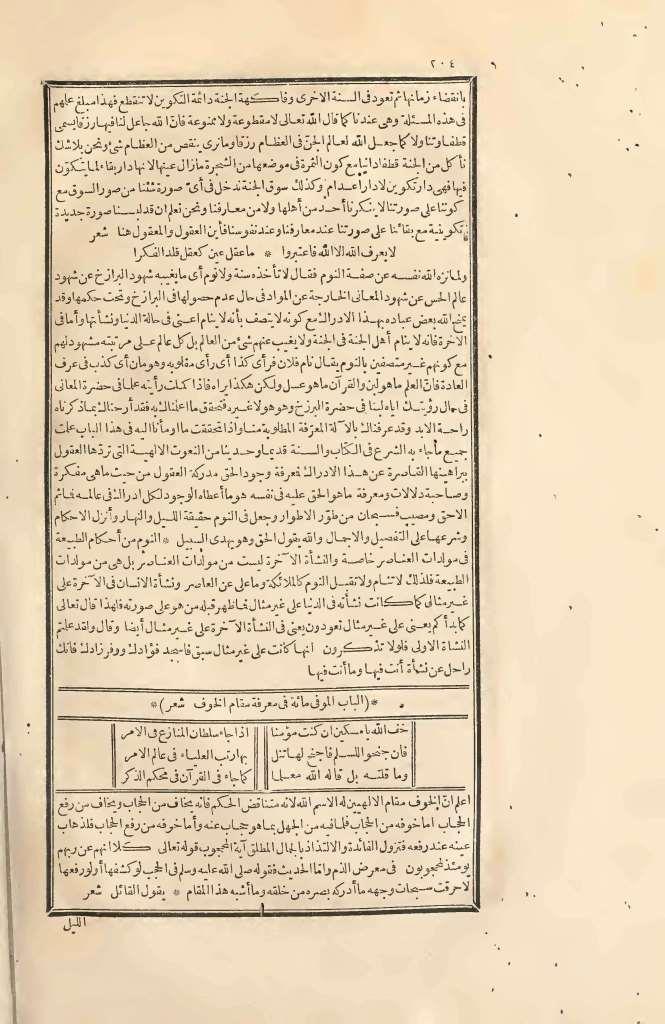 ٢٠٤
بانقضاء زمانها ثم تعود فى السنة الاخرى وفاكهة الجنة دائمة التكوين لا تنقطع فهذا مبلغ علمهم
فى هذه المسئلة وهى عندنا كما قال الله تعالى لا مقطوعة ولا ممنوعة فان الله جاعل لنا فيها رزقا يسمى
قطفا وتناولا كما جعل الله لعالم الجن فى العظام رزقا وما نرى ينقص من العظام شئ ونحن بلا شك
نأكل من الجنة قطفا دانيا مع كون الثمرة فى موضعها من الشجرة ما زال عينها لانها دار بقاء لما يتكوّن
فيها فهى دار تكوين لا دار اعدام وكذلك سوق الجنة ندخل فى أىّ صورة شئنا من صور السوق مع
كوننا على صورتنا لا ينكرنا أحد من أهلها ولا من معارفنا ونحن نعلم ان قد لبسنا صورة جديدة
تكوينية مع بقائنا على صورتنا عند معارفنا وعند نفوسنا فأين العقول والمعقول هنا شعر
لا يعرف الله الا الله فاعتبروا * ما عقل عين كعقل قلد الفكرا
ولما نزه الله نفسه عن صفة النوم فقال لا تأخذه سنة ولا نوم أى ما يغيبه شهود البرازخ عن شهود
عالم الحس عن شهود المعانى الخارجة عن المواد فى حال عدم حصولها فى البرازخ وتحت حكمها وقد
يمنح الله بعض عباده بهذا الادراك مع كونه لا يتصف بأنه لا ينام اعنى فى حالة الدنيا ونشأتها وأما فى
الآخرة فانه لا ينام أهل الجنة فى الجنة ولا يغيب عنهم شئ من العالم بل كل عالم على مرتبته مشهود لهم
مع كونهم غير متصفين بالنوم يقال نام فلان فرأى كذا أى رأى مقلوبه وهو مان أى كذب فى عرف
العادة فانّ العلم ما هو لبن والقرآن ما هو عسل ولكن هكذا يراه فاذا كملت رأيته علما فى حضرة المعانى
فى حال رؤيتك اياه لبنا فى حضرة البرزخ وهو هو لا غيره فتحقق ما اعلمناك به فقد أرحناك بما ذكرناه
راحة الابد وقد عرفناك بالآلة المعرّفة المطلوبة منا واذا تحققت ما أومأنا اليه فى هذا الباب علمت
جميع ما جاء به الشرع فى الكتاب والسنة قديما وحديثا من النعوت الالهية التى تردّها العقول
ببراهينها القاصرة عن هذا الادراك فمعرفة وجود الحق مدركة العقول من حيث ما هى مفكرة
وصاحبة دلالات ومعرفة ما هو الحق عليه فى نفسه هو ما أعطاه الوجود لكل ادراك فى عالمه فما ثم
الا حق ومصيب فسبحان من طوّر الاطوار وجعل فى النوم حقيقة الليل والنهار وأنزل الاحكام
وشرعها على التفصيل والاجمال والله يقول الحق وهو يهدى السبيل * النوم من أحكام الطبيعة
فى مولدات العناصر خاصة والنشأة الآخرة ليست من مولدات العناصر بل هى من مولدات
الطبيعة فلذلك لا تنام ولا تقبل النوم كالملائكة وما على عن العناصر ونشأة الانسان فى الآخرة على
غير مثال كما كانت نشأته فى الدنيا على غير مثال فما ظهر قبله من هو على صورته فلهذا قال تعالى
كما بدأكم يعنى على غير مثال تعودون يعنى فى النشأة الآخرة على غير مثال أيضا وقال ولقد علمتم
النشأة الاولى فلولا تذكرون انها كانت على غير مثال سبق فاجهد فؤادك ووفر زادك فانك
راحل عن نشأة أنت فيها وما أنت فيها
* (الباب الموفى مائة فى معرفة مقام الخوف شعر) *
خف الله يا مسكين ان كنت مؤمنا اذا جاء سلطان المنازع فى الامر
فان جنحوا للسلم فاجنح لها تنل بها رتب العلياء فى عالم الامر
وما قلته بل قاله الله معلما كما جاء فى القرآن فى محكم الذكر
اعلم انّ الخوف مقام الالهيين له الاسم الله لانه متناقض الحكم فانه يخاف من الحجاب ويخاف من رفع
الحجاب اما خوفه من الحجاب فلما فيه من الجهل بما هو حجاب عنه وأما خوفه من رفع الحجاب فلذهاب
عينه عند رفعه فتزول الفائدة والالتذاذ بالجمال المطلق آية المحجوب قوله تعالى كلا انهم عن ربهم
يومئذ لمحجوبون فى معرض الذم وامّا الحديث فقوله صلى الله عليه وسلم فى الحجب لو كشفها أو لو رفعها
لاحرقت سبحات وجهه ما أدركه بصره من خلقه وما أشبه هذا المقام * بقول القائل شعر
الليل